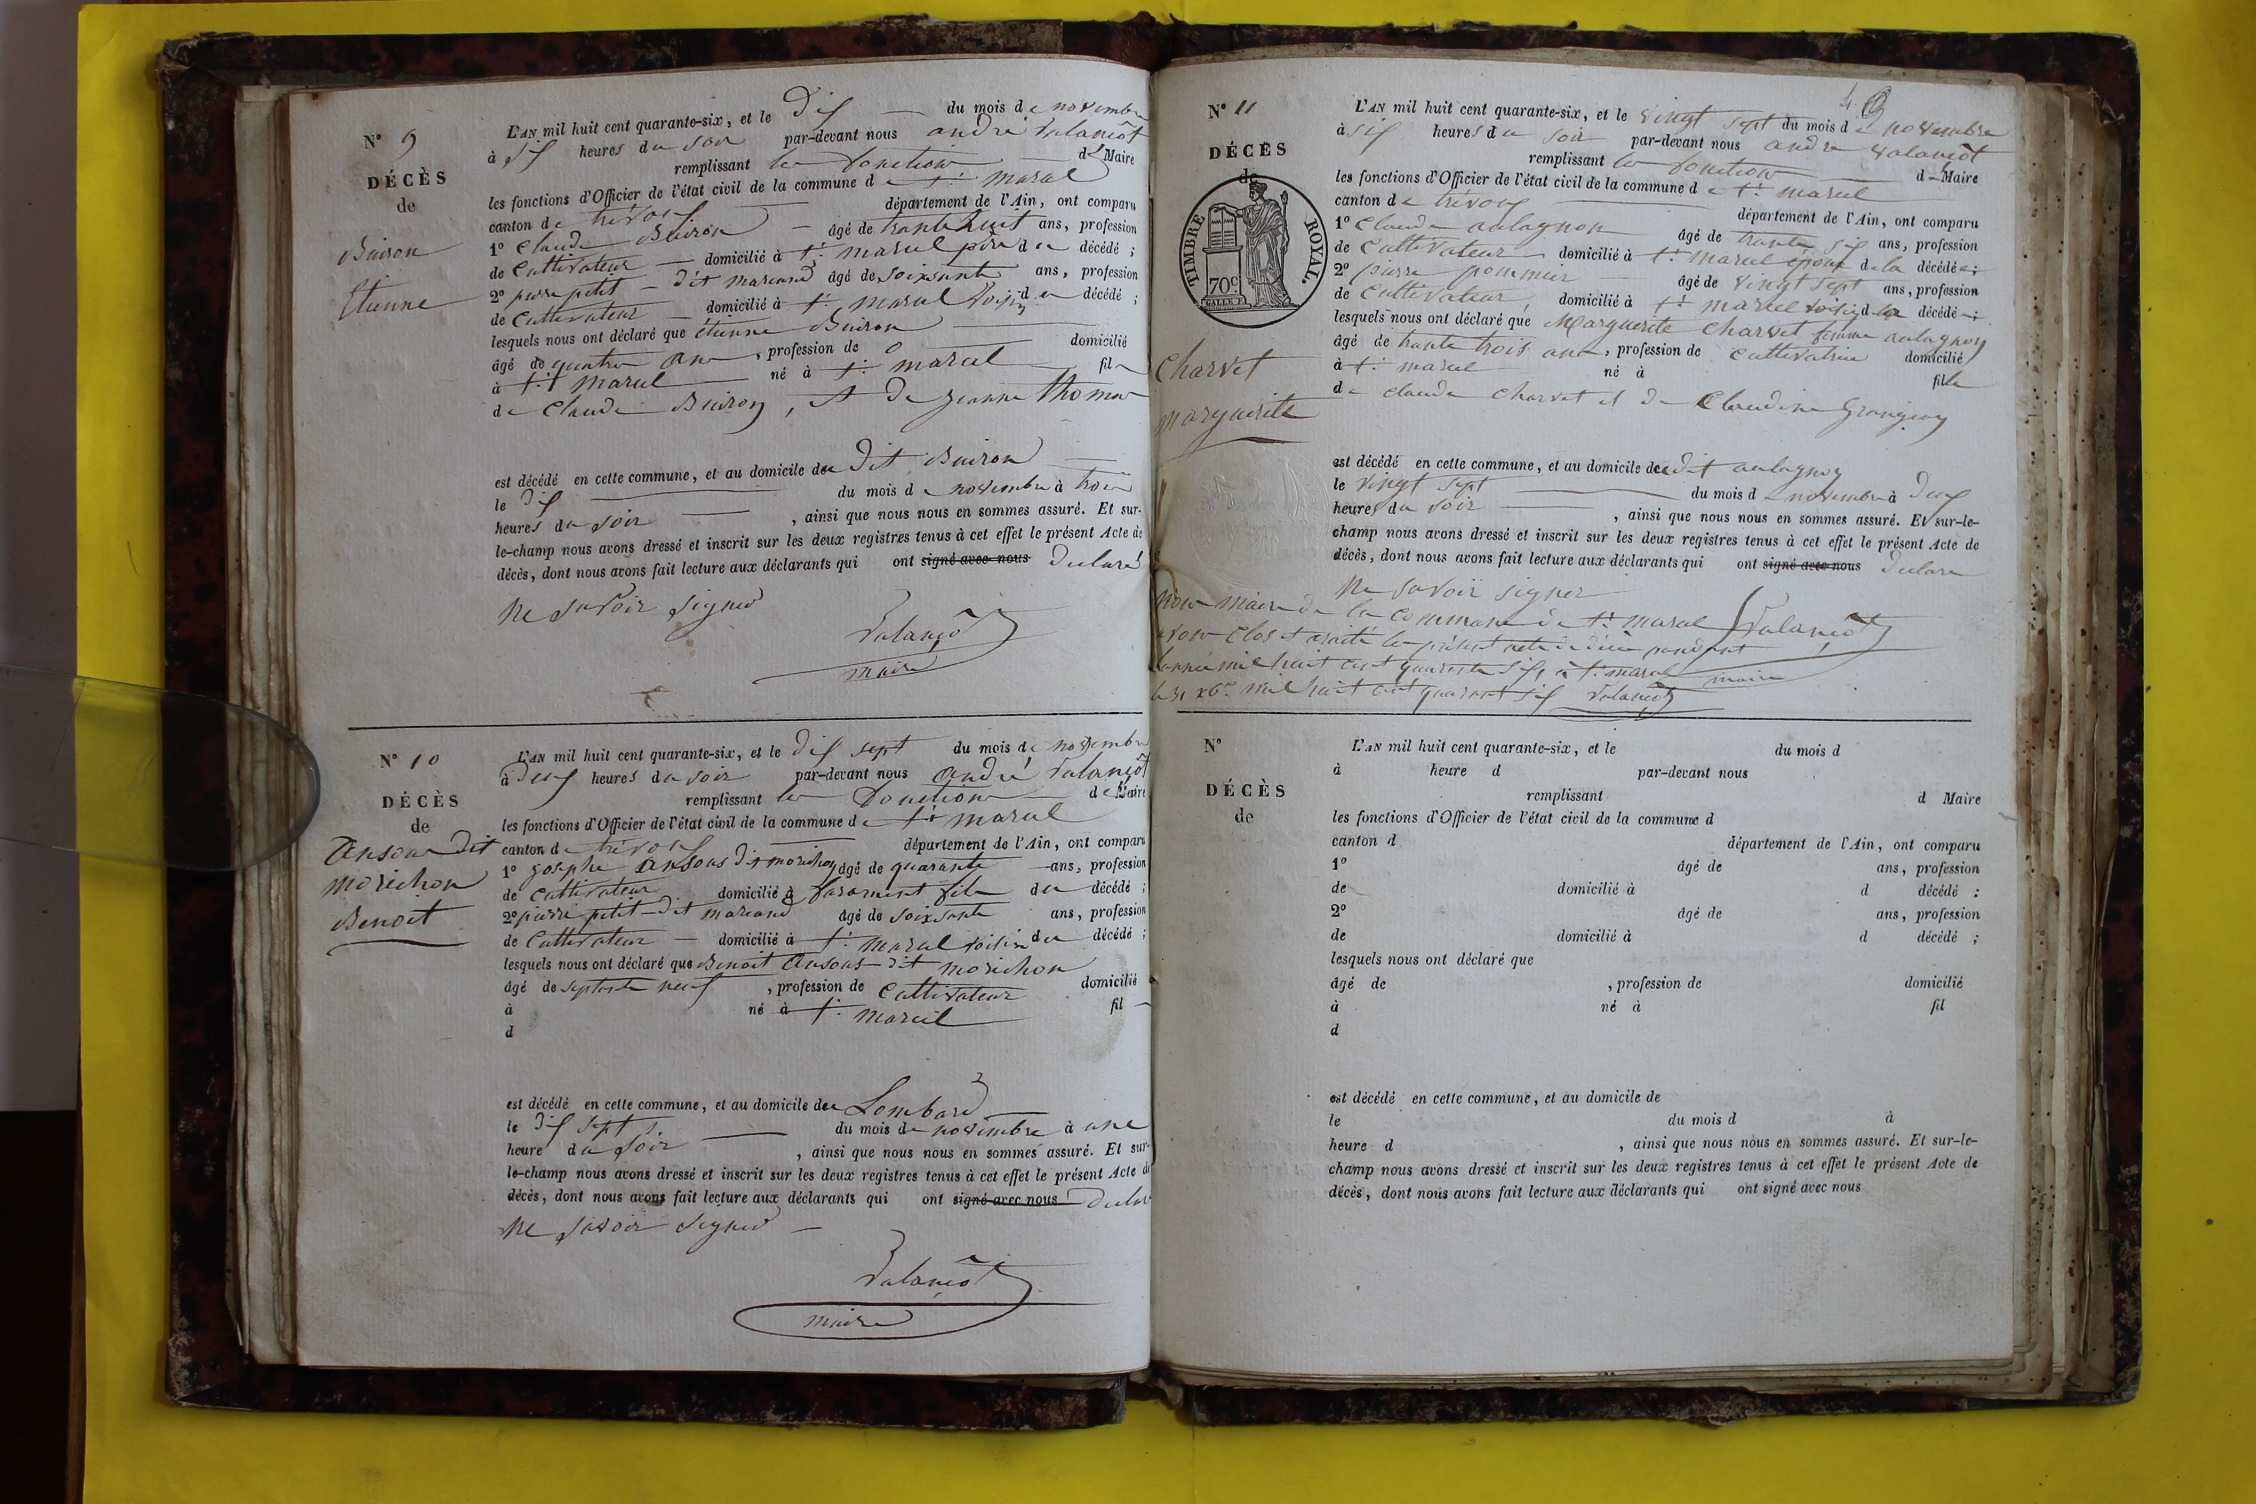 N° 9
DÉCÈS
de
Buiron
Etienne
L'AN mil huit cent quarante-six, et le Dix du mois de novembre
à six heures du soir par-devant nous andré Valançot
remplissant les fonctions d Maire
les fonctions d'Officier de l'état civil de la commune de St marcel
canton de trévoux département de l'Ain, ont comparu
1° Claude Buiron âgé de trante huit ans, profession
de Cultivateur domicilié à St marcel père du décédé ;
2° pierre petit dit marcand âgé de soixsante ans, profession
de Cultivateur domicilié à St marcel voisin du décédé ;
lesquels nous ont déclaré que étienne Buiron
âgé de quatre ans, profession de domicilié
à St marcel né à St marcel fil
de Claude Buiron, et de jeanne thomas
est décédé en cette commune, et au domicile du dit Buiron
le dix du mois de novembre à trois
heures du soir, ainsi que nous nous en sommes assuré. Et sur-
le-champ nous avons dressé et inscrit sur les deux registres tenus à cet effet le présent Acte de
décès, dont nous avons fait lecture aux déclarants qui ont signé avec nous declaré
ne savoir signer
Valançot
maire
N° 10
DÉCÈS
de
Ansous dit
morichon
Benoit
L'AN mil huit cent quarante-six, et le dix sept du mois de novembre
à deux heures du soir par-devant nous andré Valançot
remplissant les fonctions de Maire
les fonctions d'Officier de l'état civil de la commune de St marcel
canton de trévoux département de l'Ain, ont comparu
1° josephe Ansous dit morichon âgé de quarante ans, profession
de Cultivateur domicilié à fils du décédé ;
2° pierre petit dit marcand âgé de soixsante ans, profession
de Cultivateur domicilié à St marcel voisin du décédé ;
lesquels nous ont déclaré que Benoit Ansous dit morichon
âgé de septante neuf, profession de Cultivateur domicilié
à né à St marcel fil
d
est décédé en cette commune, et au domicile du Lombard
le dix sept du mois de novembre à une
heure du soir, ainsi que nous nous en sommes assuré. Et sur-
le-champ nous avons dressé et inscrit sur les deux registres tenus à cet effet le présent Acte de
décès, dont nous avons fait lecture aux déclarants qui ont signé avec nous declar
ne savoir signer
Valançot
maire
4
N° 11
DÉCÈS
de
TIMBRE ROYAL.
70c
Charvet
marguerite
L'AN mil huit cent quarante-six, et le vingt sept du mois de novembre
à six heures du soir par-devant nous andré valançot
remplissant les fonctions d Maire
les fonctions d'Officier de l'état civil de la commune de St marcel
canton de trévoux département de l'Ain, ont comparu
1° Claude aulagnon âgé de trante six ans, profession
de Cultivateur domicilié à St marcel époux de la décédée ;
2° pierre pommier âgé de vingt sept ans, profession
de Cultivateur domicilié à St marcel voisin de la décédée ;
lesquels nous ont déclaré que Marguerite Charvet femme aulagnon
âgé de trante trois ans, profession de cultivatrice domicilié
à St marcel né à fille
de claude charvet et de Claudine
est décédé en cette commune, et au domicile du dit aulagnon
le vingt sept du mois de novembre à deux
heures du soir, ainsi que nous nous en sommes assuré. Et sur-le-
champ nous avons dressé et inscrit sur les deux registres tenus à cet effet le présent Acte de
décès, dont nous avons fait lecture aux déclarants qui ont signé avec nous declare
ne savoir signer
Valançot
maire
nous maire de la commune de St marcel
avons clos et arrêté le présent acte de décès pandant
l'année mil huit cent quarante six, à St marcel
le 31 xbre mil huit cent quarante six Valançot
N°
DÉCÈS
de
L'AN mil huit cent quarante-six, et le du mois d
à heure d par-devant nous
remplissant d Maire
les fonctions d'Officier de l'état civil de la commune d
canton d département de l'Ain, ont comparu
1° âgé de ans, profession
de domicilié à d décédé :
2° âgé de ans, profession
de domicilié à d décédé ;
lesquels nous ont déclaré que
âgé de , profession de domicilié
à né à fil
d
est décédé en cette commune, et au domicile de
le du mois d à
heure d , ainsi que nous nous en sommes assuré. Et sur-le-
champ nous avons dressé et inscrit sur les deux registres tenus à cet effet le présent Acte de
décès, dont nous avons fait lecture aux déclarants qui ont signé avec nous